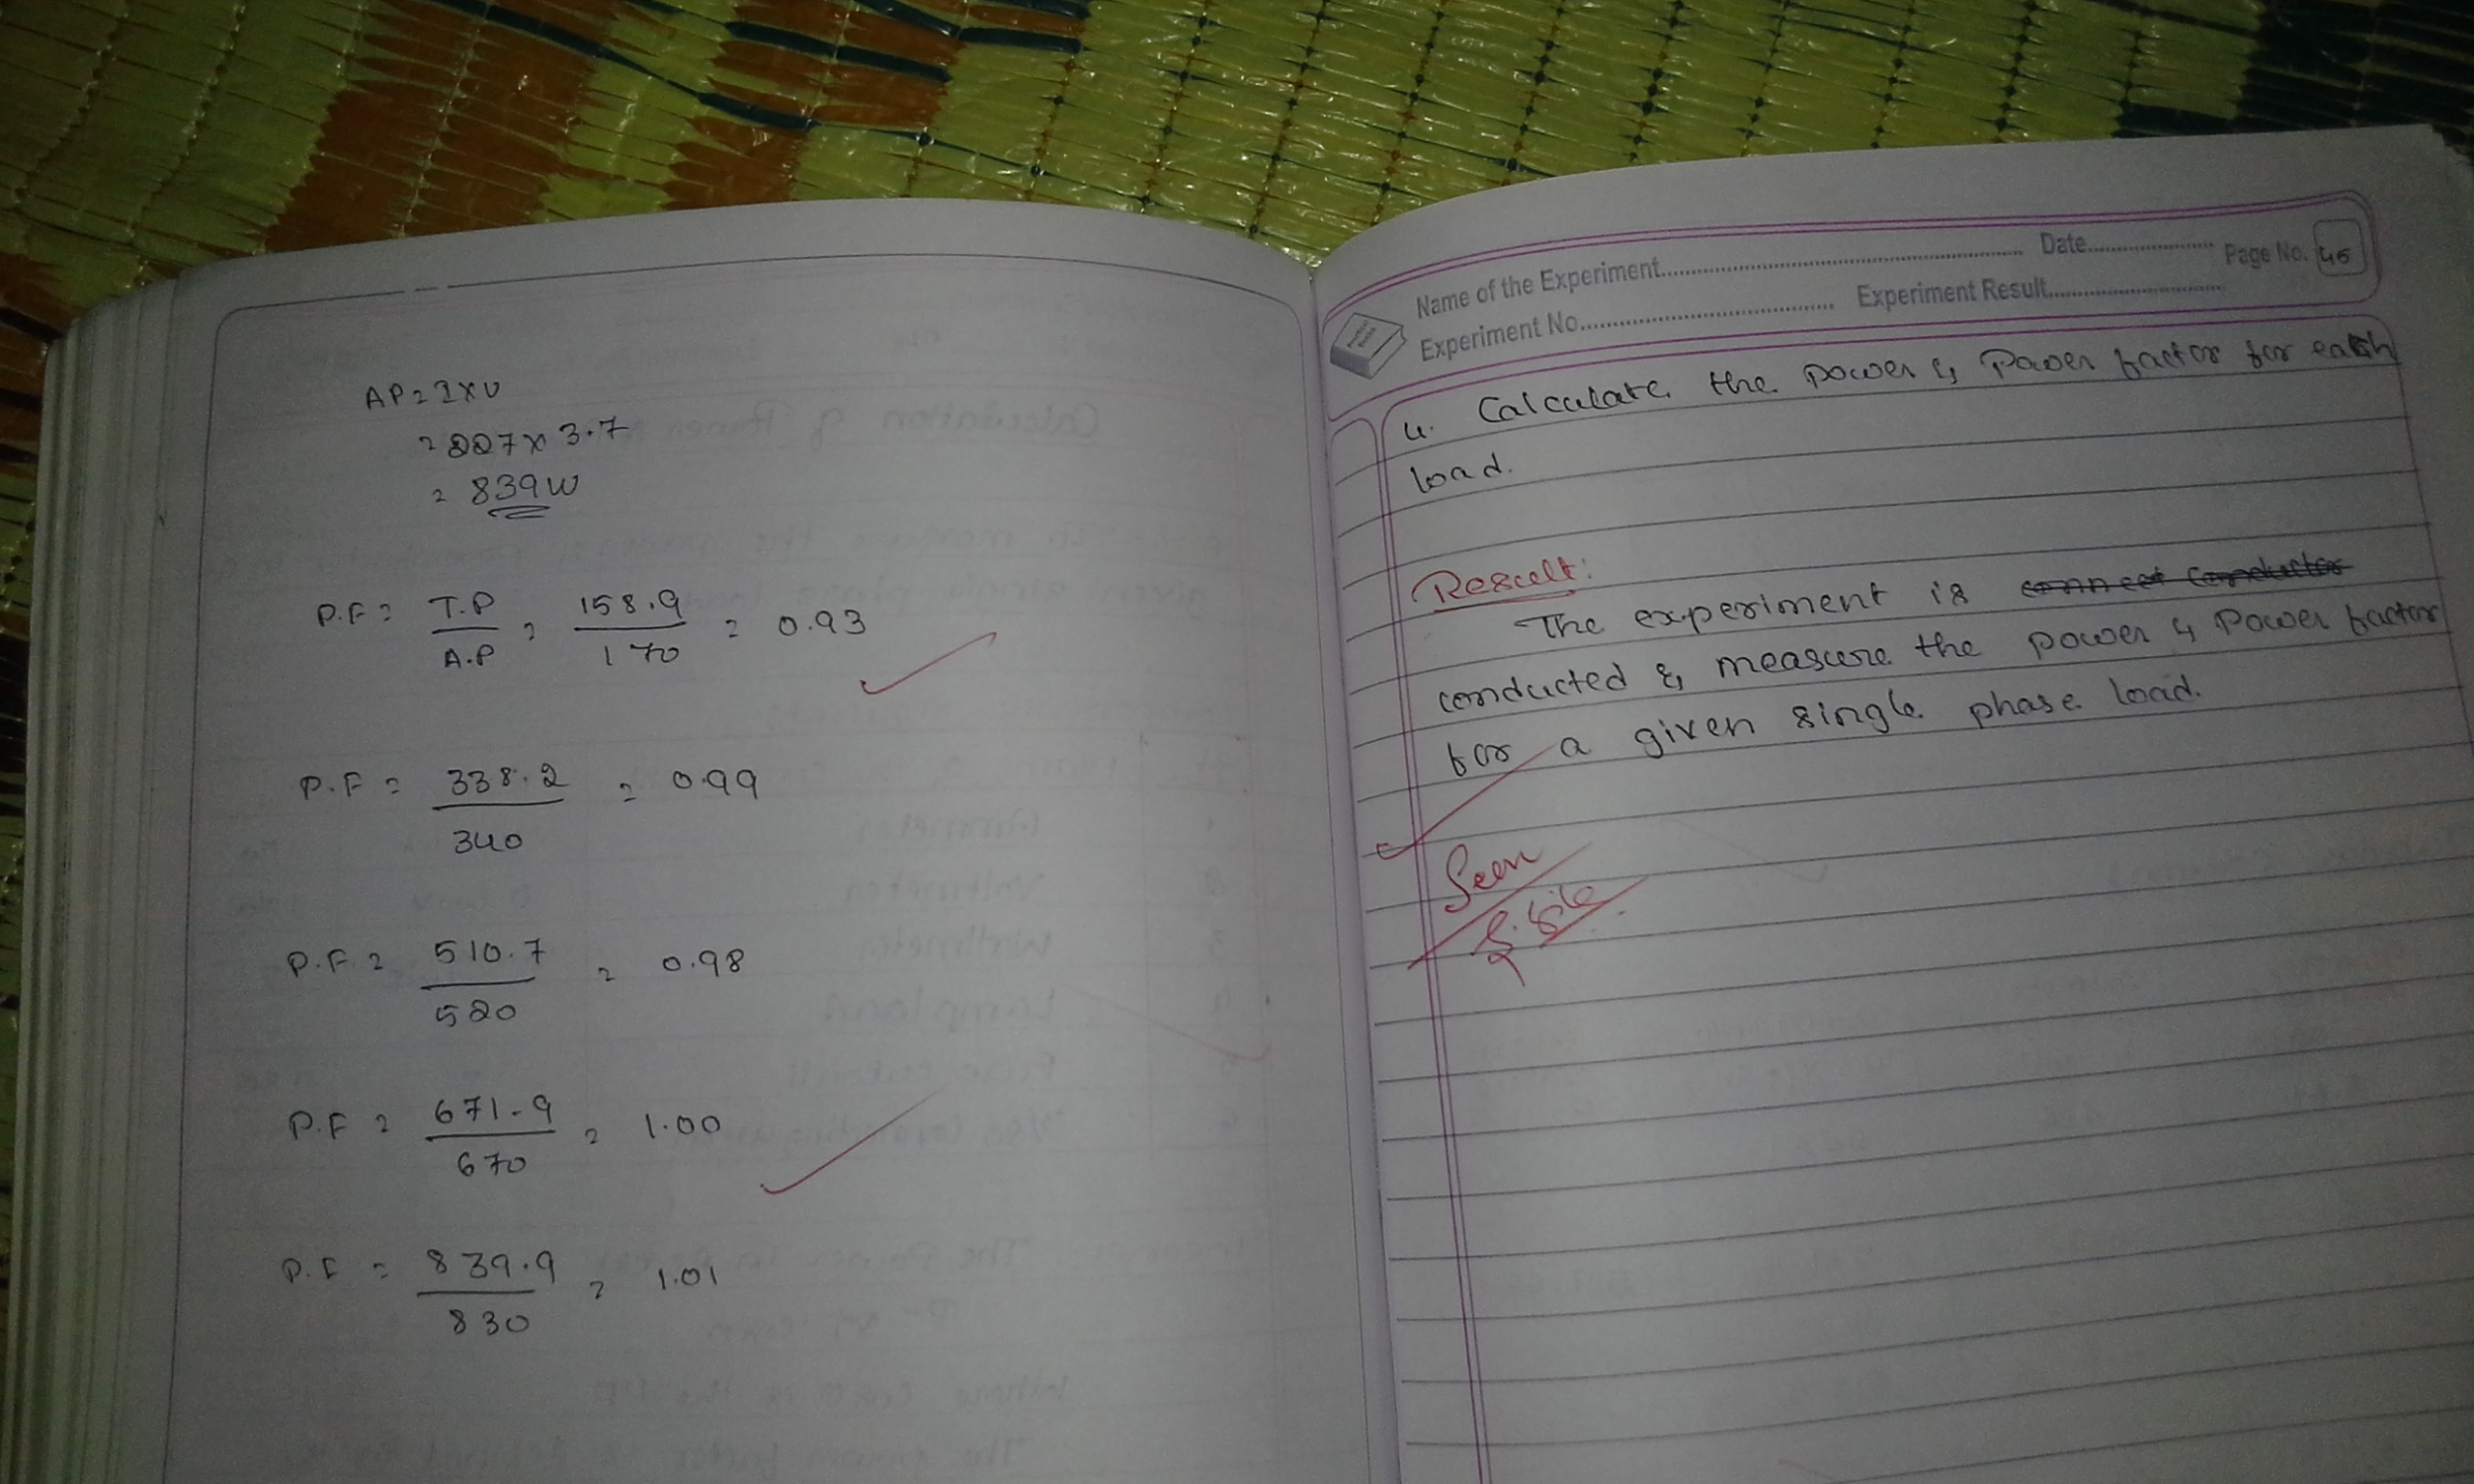 AP = I x V
= 227 x 3.7
= 839W
P.F = T.P / A.P = 158.9 / 170 = 0.93
P.F = 338.2 / 340 = 0.99
P.F = 510.7 / 520 = 0.98
P.F = 671.9 / 670 = 1.00
P.F = 839.9 / 830 = 1.01
Name of the Experiment Date Page No. 45
Experiment No. Experiment Result
4. Calculate the power & Power factor for each
load.
Result:
The experiment is connect conductor
conducted & measure the power & Power factor
for a given single phase load.
Seen